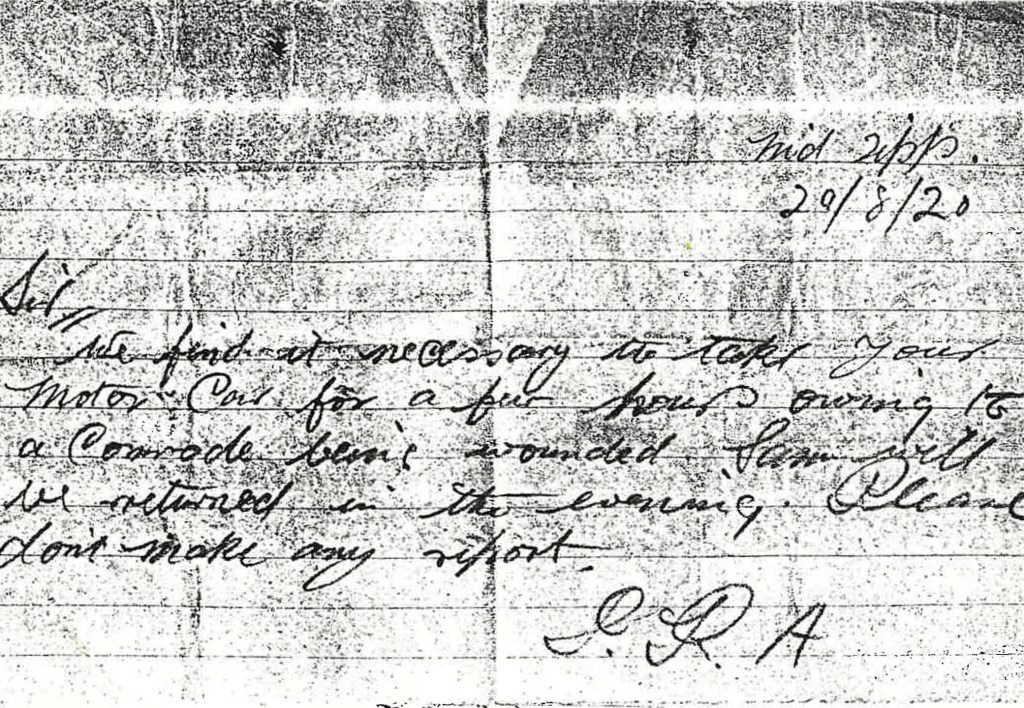 Mid Tipp.
29/8/20
Sir,,
We find it necessary to take your
Motor Car for a few hours owing to
a Comrade being wounded. Same will
be returned in the evening. Please
dont make any report.
I. R. A